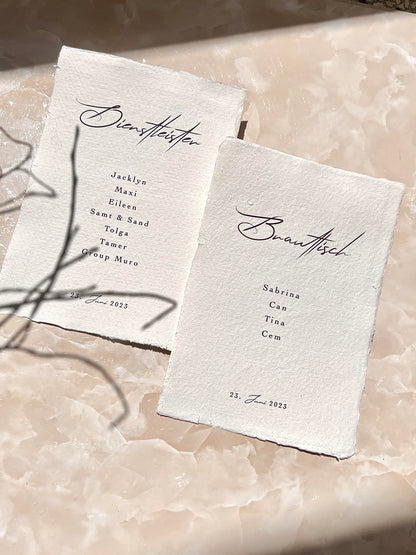 Dienstleister
Jacklyn
Maxi
Eileen
Samt & Sand
Tolga
Tamer
Group Muro
23. Juni 2023
Brauttisch
Sabrina
Can
Tina
Cem
23. Juni 2023